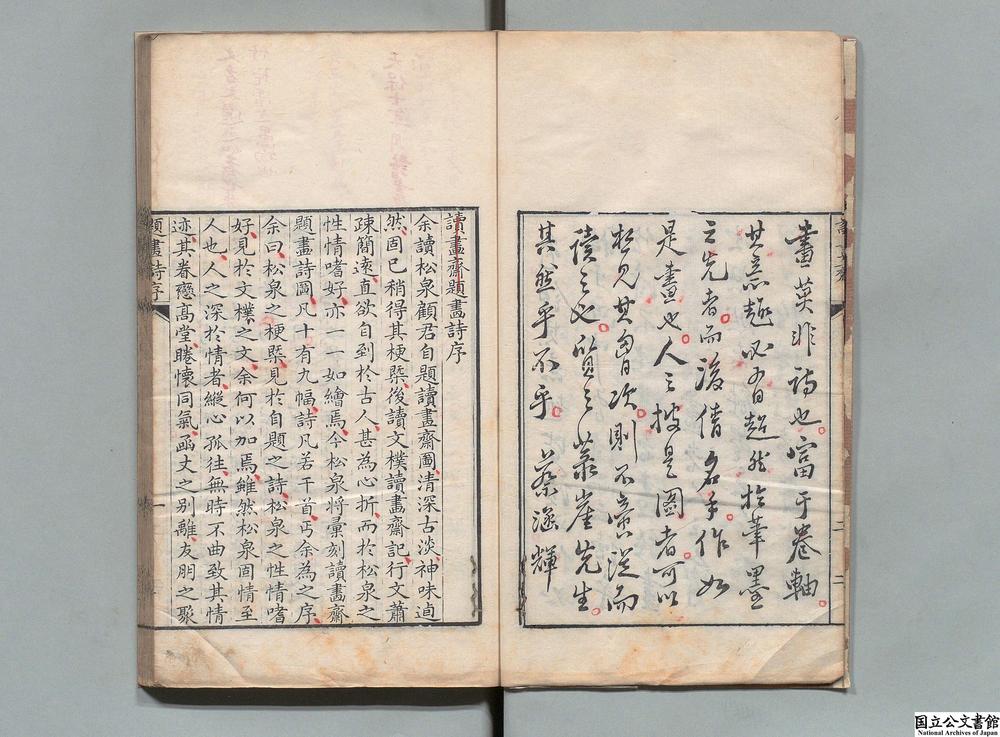 畫莫非詩也富于卷軸
其意趣必有超然於筆墨
之先者而後借名手作如
是畫也人之披是圖者可以
想見其胸次則不啻從而
讀之也質之菉崖先生
其然乎不乎 蔡
讀畫齋題畫詩序
余讀松泉顧君自題讀畫齋圖清深古淡神味逈
然固已稍得其梗槩後讀文樸讀畫齋記行文蕭
疎簡遠直欲自到於古人甚為心折而於松泉之
性情嗜好亦一一如繪焉今松泉將彙刻讀畫齋
題畫詩圖凡十有九幅詩凡若干首丐余為之序
余曰松泉之梗槩見於自題之詩松泉之性情嗜
好見於文樸之文余何以加焉雖然松泉固情至
人也人之深於情者縱心孤往無時不曲致其情
迹其眷戀高堂睠懷同氣函丈之別離友朋之聚
題畫詩序
一
国立公文書館
National Archives of Japan